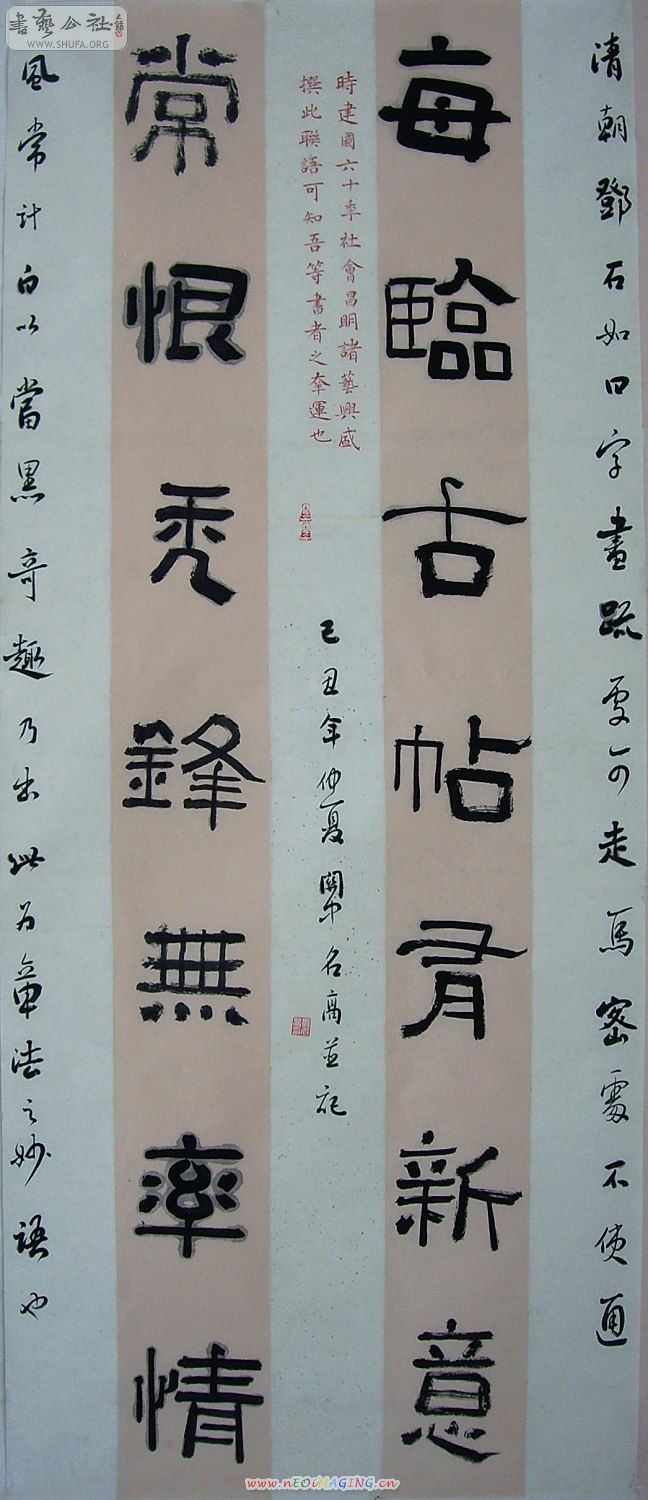 清朝鄧石如曰字畫疏處可走馬密處不使通
每臨古帖有新意
時建國六十年社會昌明諸藝興盛
撰此聯語可知吾等書者之幸運也
己丑年仲夏關中名高並記
常恨禿鋒無率情
風常計白以當黑奇趣乃出此為章法之妙語也
書藝公社
WWW.SHUFA.ORG
www.nEOiMAGING.cn